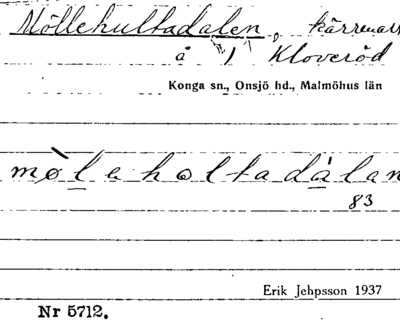 Möllehultadalen, kärrmark
å 1 Kloveröd
Konga sn., Onsjö hd., Malmöhus län
mø̀leholtadålan
83
Erik Jehpsson 1937
Nr 5712.